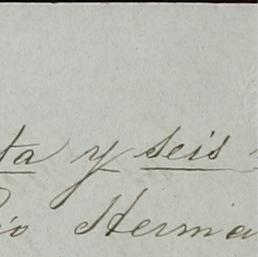 ta y seis
io Herma